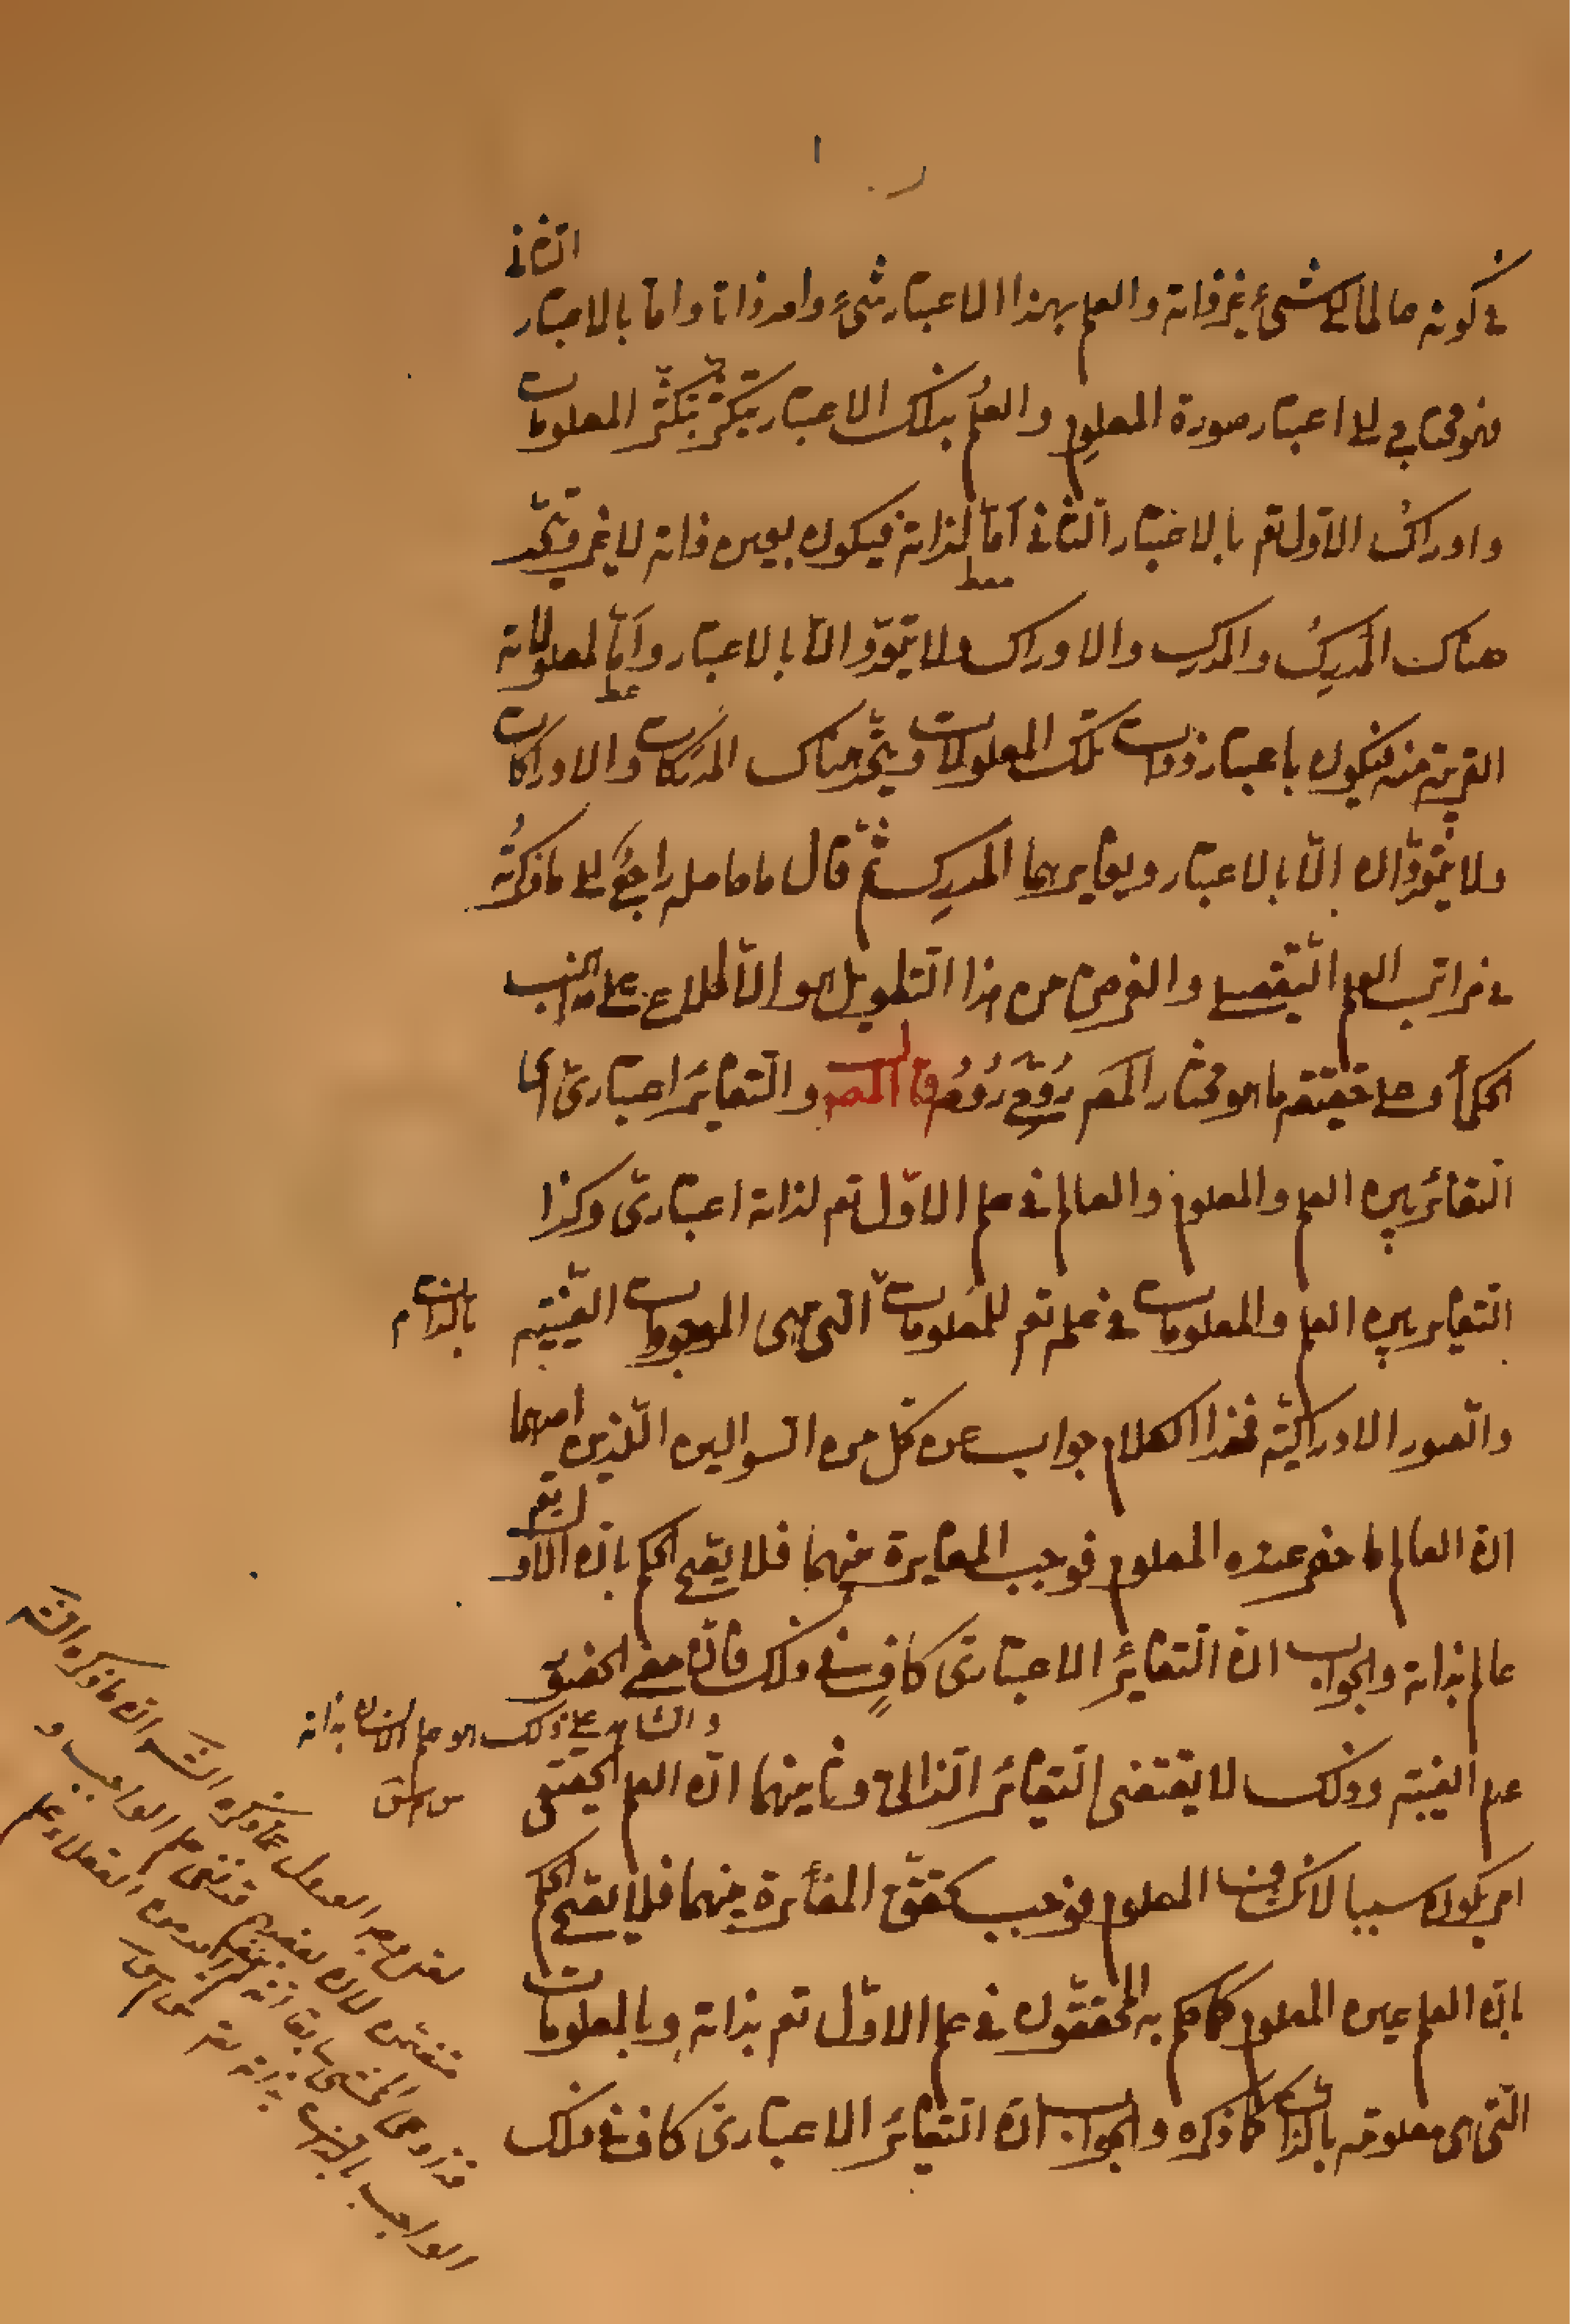 في كونه عالما لكل شيء غير ذاته والعلم بهذا الاعتبار شيء واحد ذاتا واما بالاعتبار الثاني
فهو محتاج الى اعتبار صورة المعلوم والعلم بذلك الاعتبار يتكثر بتكثر المعلومات
وادراك الاول تعم بالاعتبار الثاني اما لذاته فيكون بعين ذاته لا غير ويتحد
هناك المدرِك والمدرك والادراك ولا يتعدد الا بالاعتبار واما لمعلولاته
القريبة منه فيكون باعتبار ذوات تلك المعلولات ويتحد هناك المدركات والادراكات
ولا يتعددان الا بالاعتبار ويغايرهما المدرِك ثم قال ما حاصله راجع الى ما ذكرته
في مراتب العلم التفصيلي والغرض من هذا التطويل هو الاطلاع على مذاهب
الحكماء وعلى حقيقة ما هو مختار المصم قال المصم والتغائر اعتباري اى
التغائر بين العلم والمعلوم والعالم في علم الاول تعم لذاته اعتباري وكذا
التغاير بين العلم والمعلومات في علمه تعم للمعلومات التي هي الموجودات العينية
بالذات م
والصور الادراكية فهذا الكلام جواب عن كل من السوالين اللذين احدهما
ان العالم ما حضر عنده المعلوم فوجب المغايرة بينهما فلا يصح الحكم بان الاول تعم
عالم بذاته والجواب ان التغائر الاعتباري كافٍ في ذلك فان معنى الحضور
والشاهد على ذلك هو علم الانسان بذاته
عدم الغيبة وذلك لا يقتضى التغائر الذاتي وثانيهما ان العلم الحقيقى
امر يكون سببا لانكشاف المعلوم فوجب تحقق المغائرة بينهما فلا يصح الحكم
بان العلم عين المعلوم كما حكم به المحققون في علم الاول تعم بذاته وبالمعلومات
التي هي معلومة بالذات كما ذكره والجواب ان التغائر الاعتباري كاف في ذلك